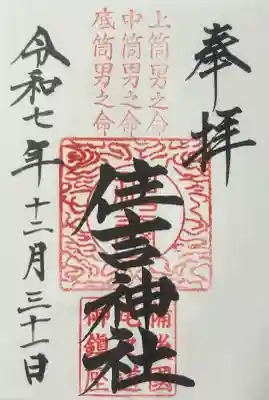 奉拝
上筒男之命
中筒男之命
底筒男之命
住吉神社
御鎮座
令和七年十二月三十一日